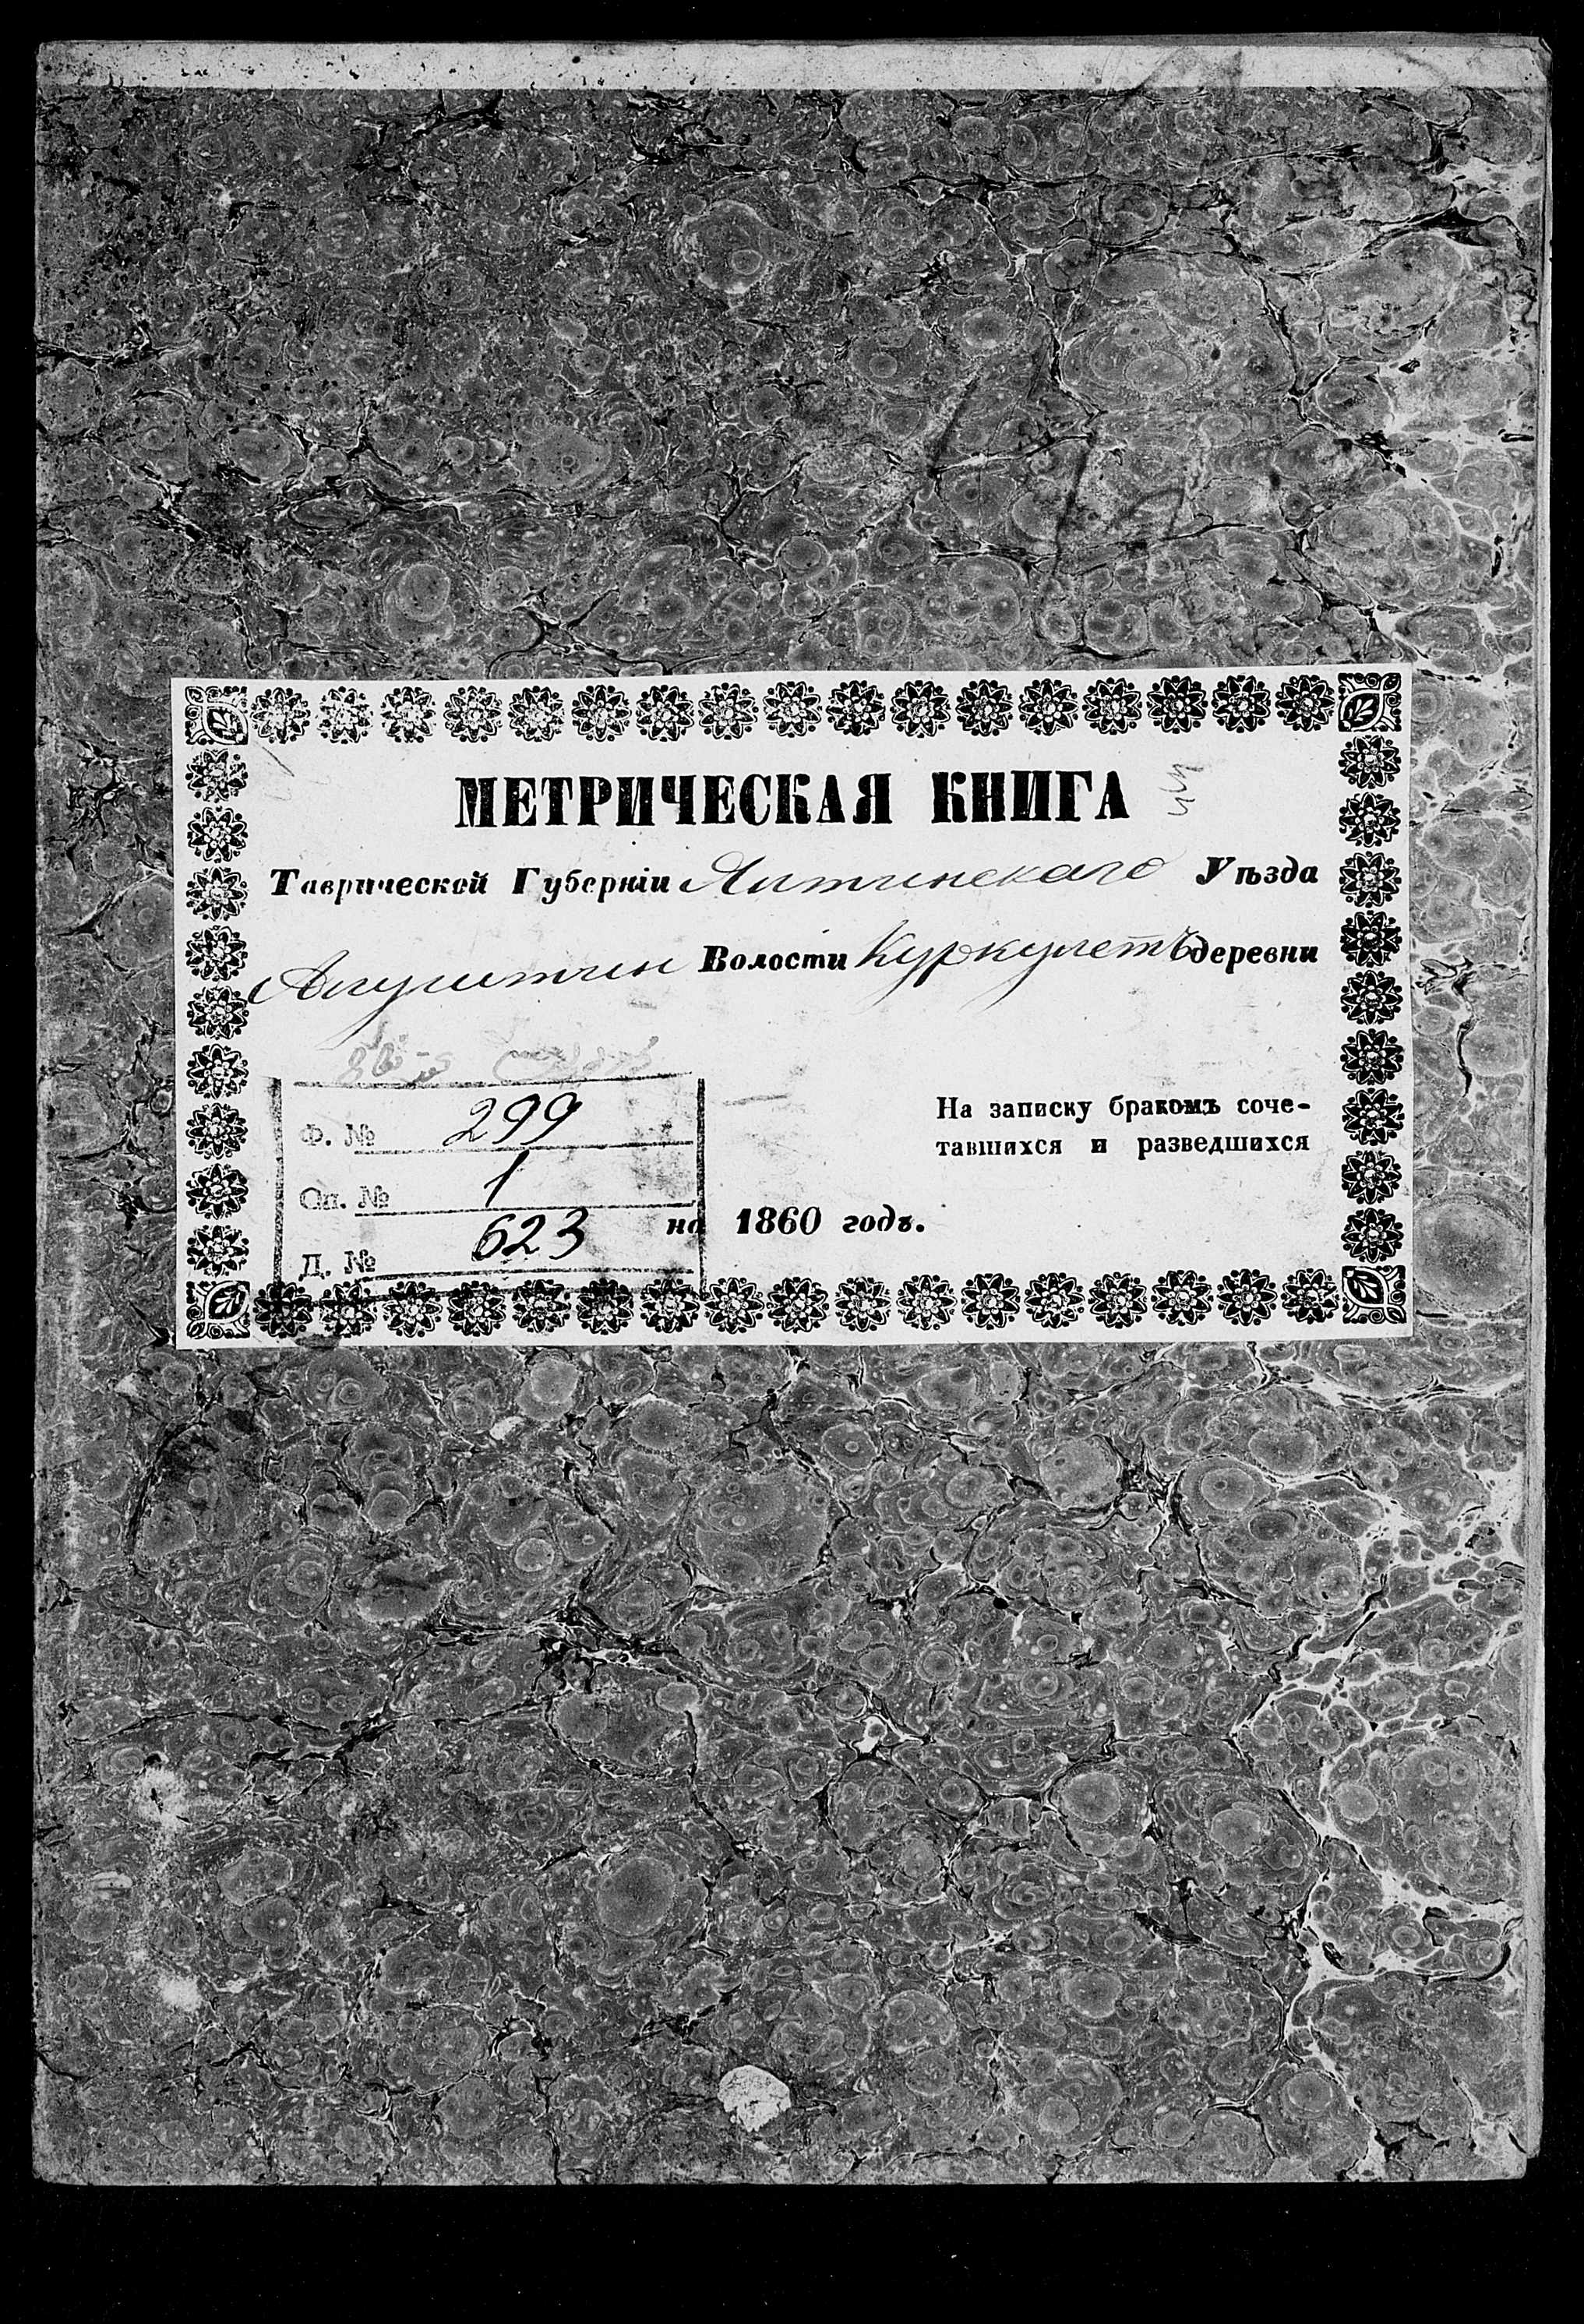 МЕТРИЧЕСКАЯ КНИГА
Таврической Губерніи Ялтинскаго Уѣзда
Алуштин Волости Куркулетъ деревни
Ф. № 299
Оп. № 1
Д. № 623
На записку бракомъ соче-
тавшихся и разведшихся
на 1860 годъ.